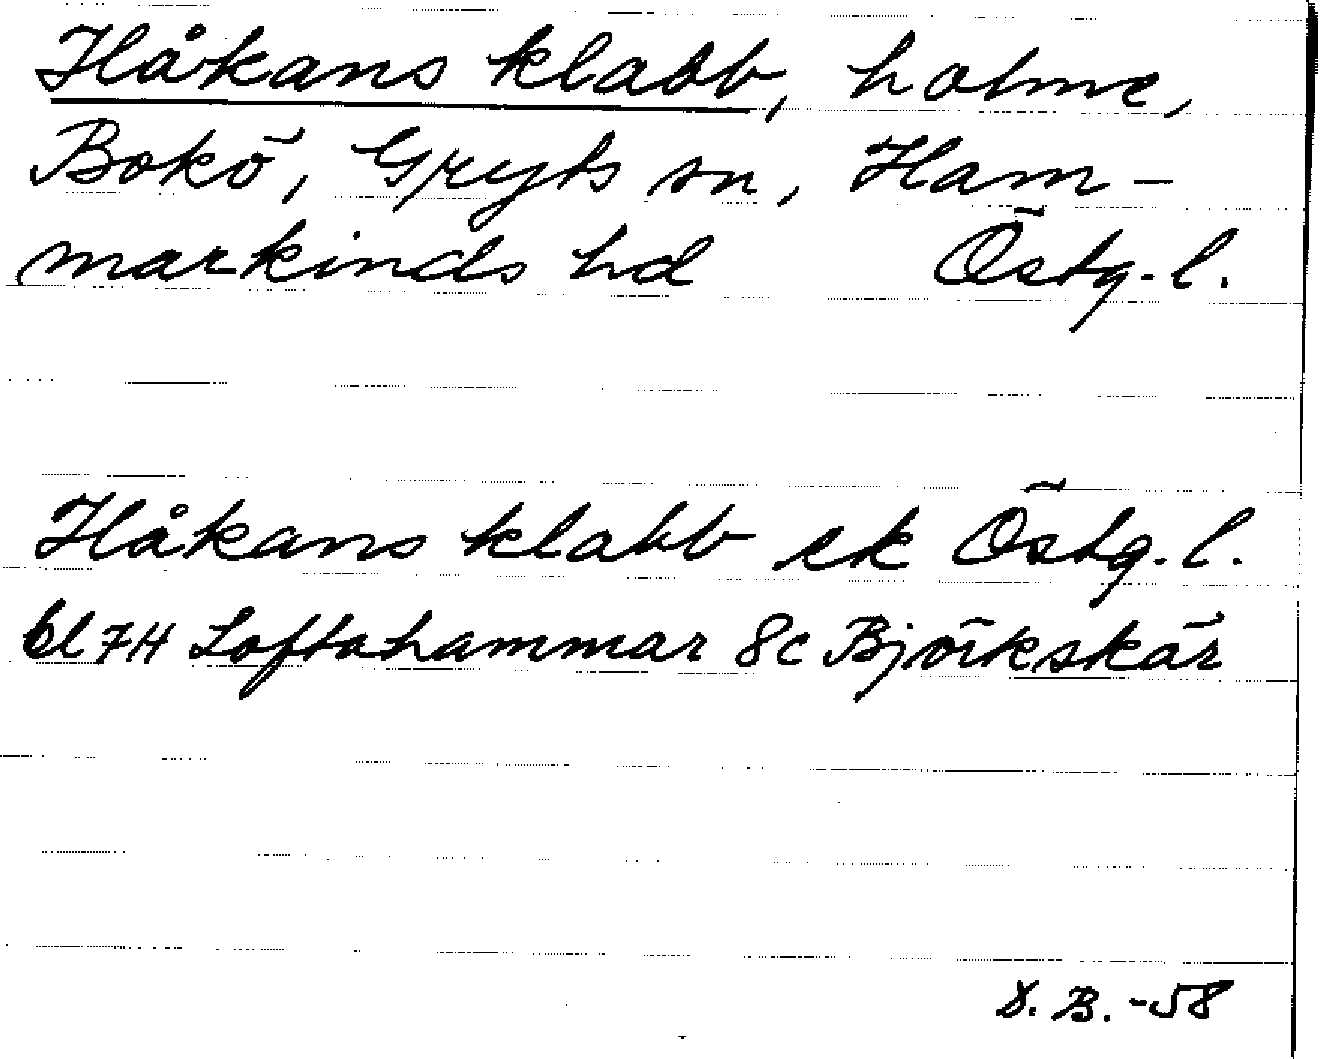 Håkans klabb, holme,
Bokö, Gryts sn, Ham-
markinds hd Östg. l.
Håkans klabb ek Östg. l.
bl 7H Loftahammar 8c Björkskär
B. -58